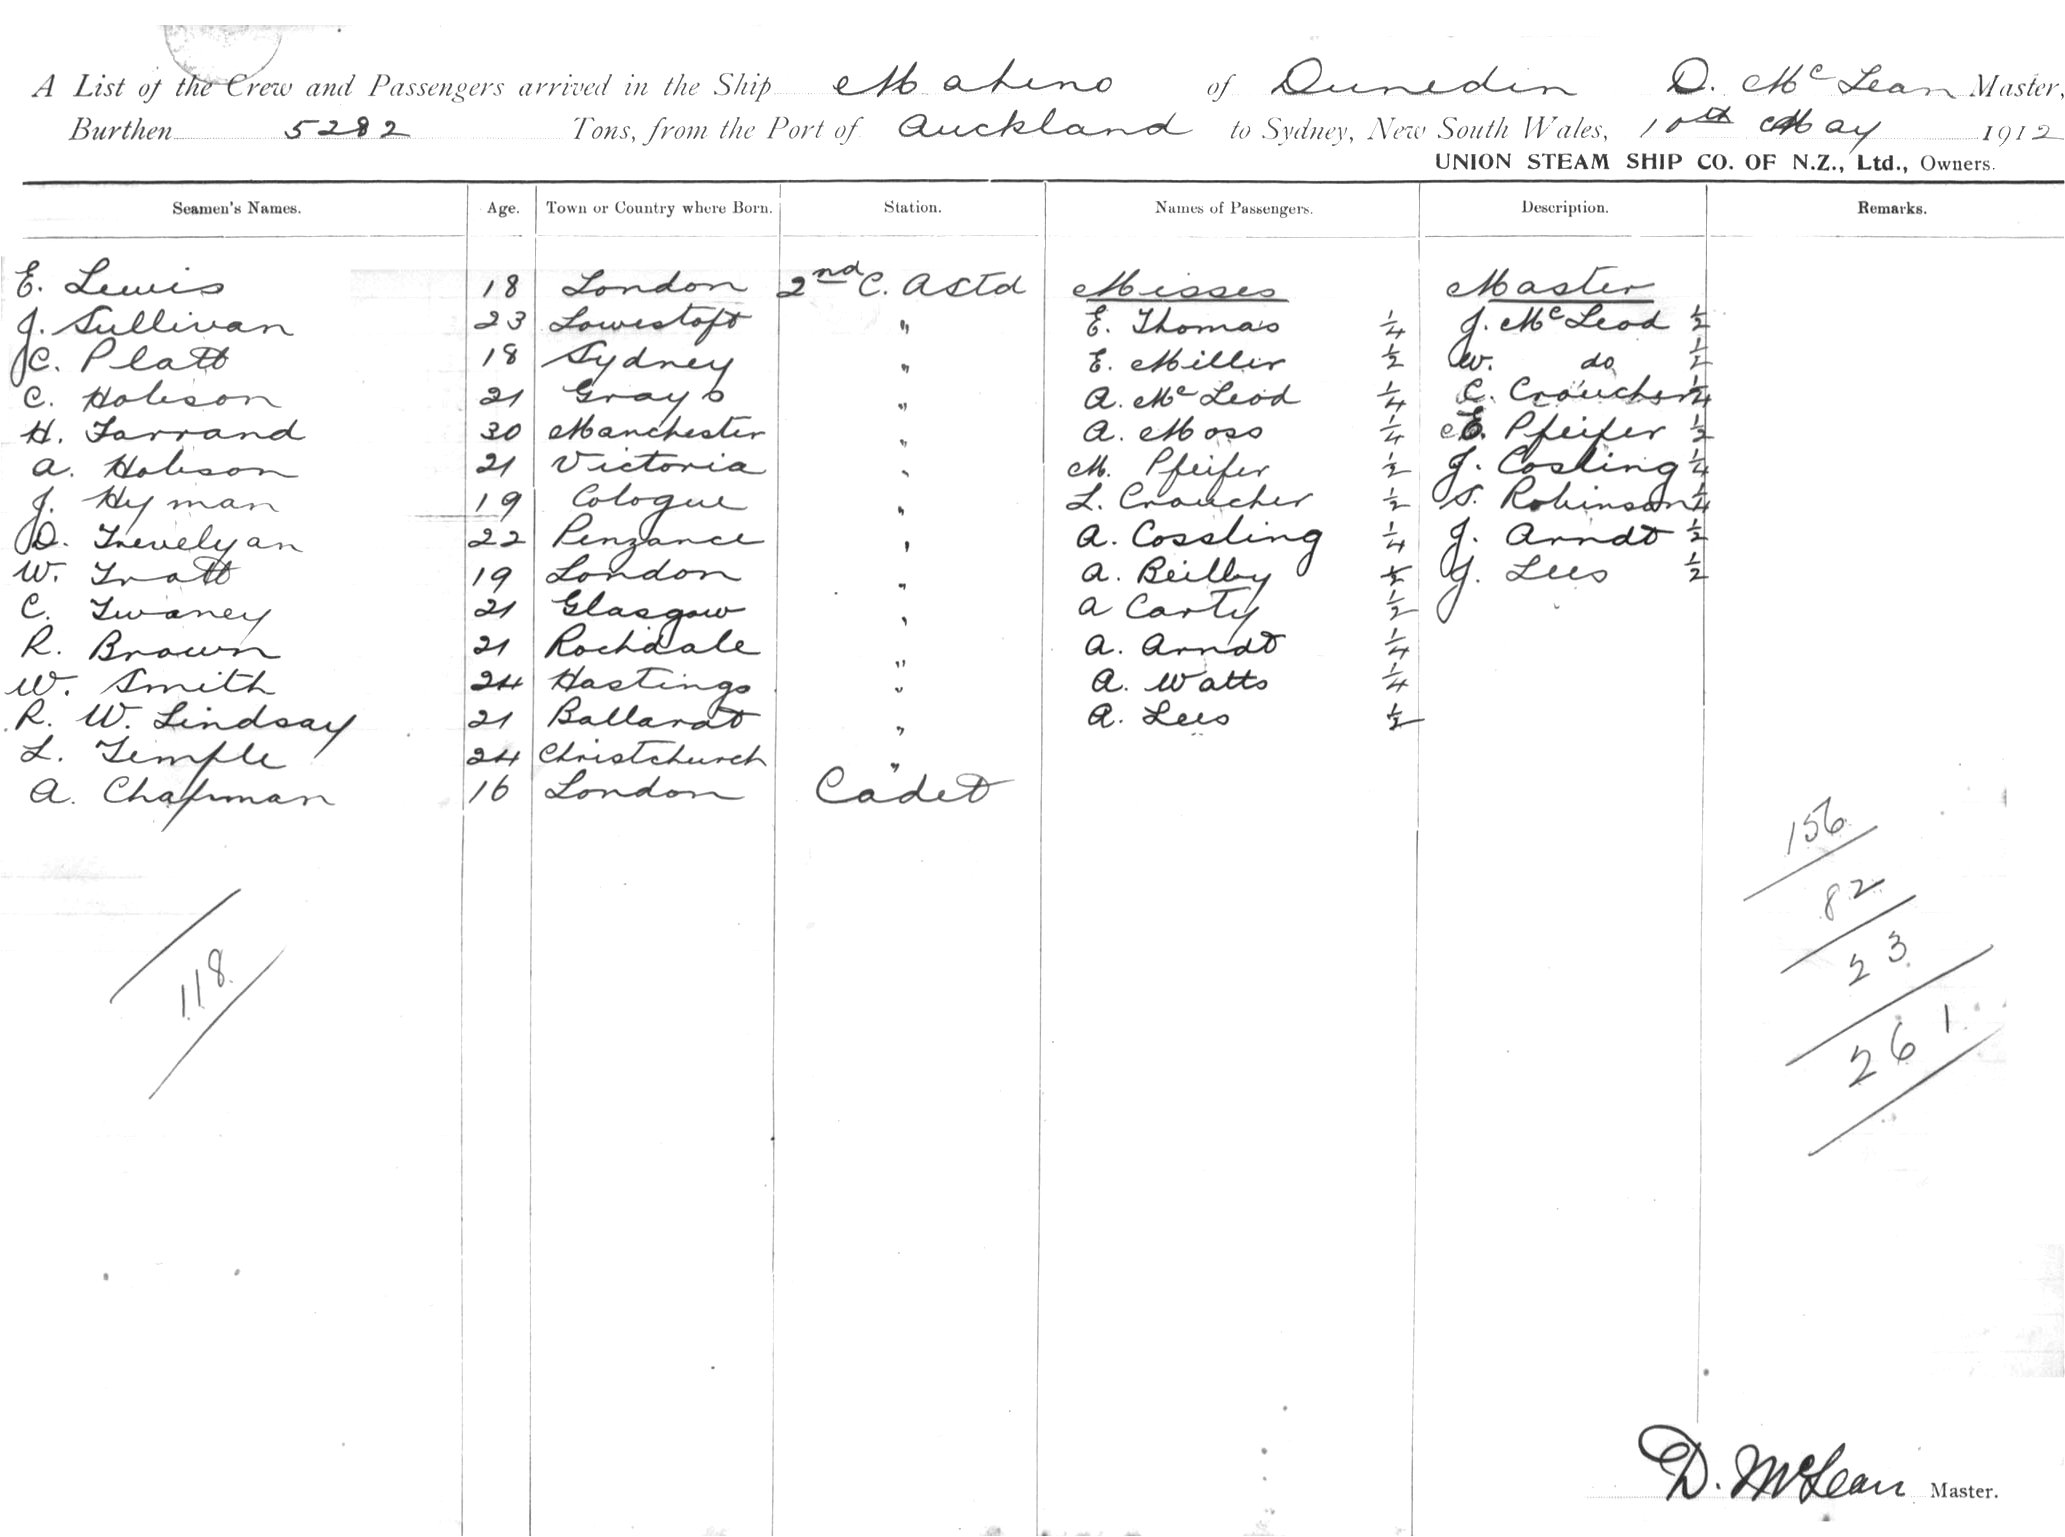 A List of the Crew and Passengers arrived in the Ship Maheno of Dunedin D. McLean Master,
Burthen 5282 Tons, from the Port of Auckland to Sydney, New South Wales, 10th May 1912
UNION STEAM SHIP CO. OF N.Z., Ltd., Owners.
Seamen's Names. Age. Town or Country where Born. Station. Names of Passengers. Description. Remarks.
E. Lewis 18 London 2nd C. Astd Misses Master
J. Sullivan 23 Lowestoft " E. Thomas 1/4 J. McLeod 1/2
C. Platt 18 Sydney " E. Miller 1/2 W. do 1/2
C. Hobson 21 Grays " A. McLeod 1/4 C. Croucher 1/4
H. Farrand 30 Manchester " A. Moss 1/4 E. Pfeifer 1/2
A. Hobson 21 Victoria " M. Pfeifer 1/2 J. Cosling 1/4
J. Hyman 19 Cologue " L. Croucher 1/2 S. Robinson 1/4
D. Trevelyan 22 Penzance " A. Cossling 1/4 J. Arndt 1/2
W. Tratt 19 London " A. Beilby 1/2 J. Lees 1/2
C. Twaney 21 Glasgow " A Carty 1/2
R. Brown 21 Rochdale " A. Arndt 1/4
W. Smith 24 Hastings " A. Watts 1/4
R. W. Lindsay 21 Ballarat " A. Lees 1/2
L. Temple 24 Christchurch "
A. Chapman 16 London Cadet
156
82
118
23
261
D. McLean Master.